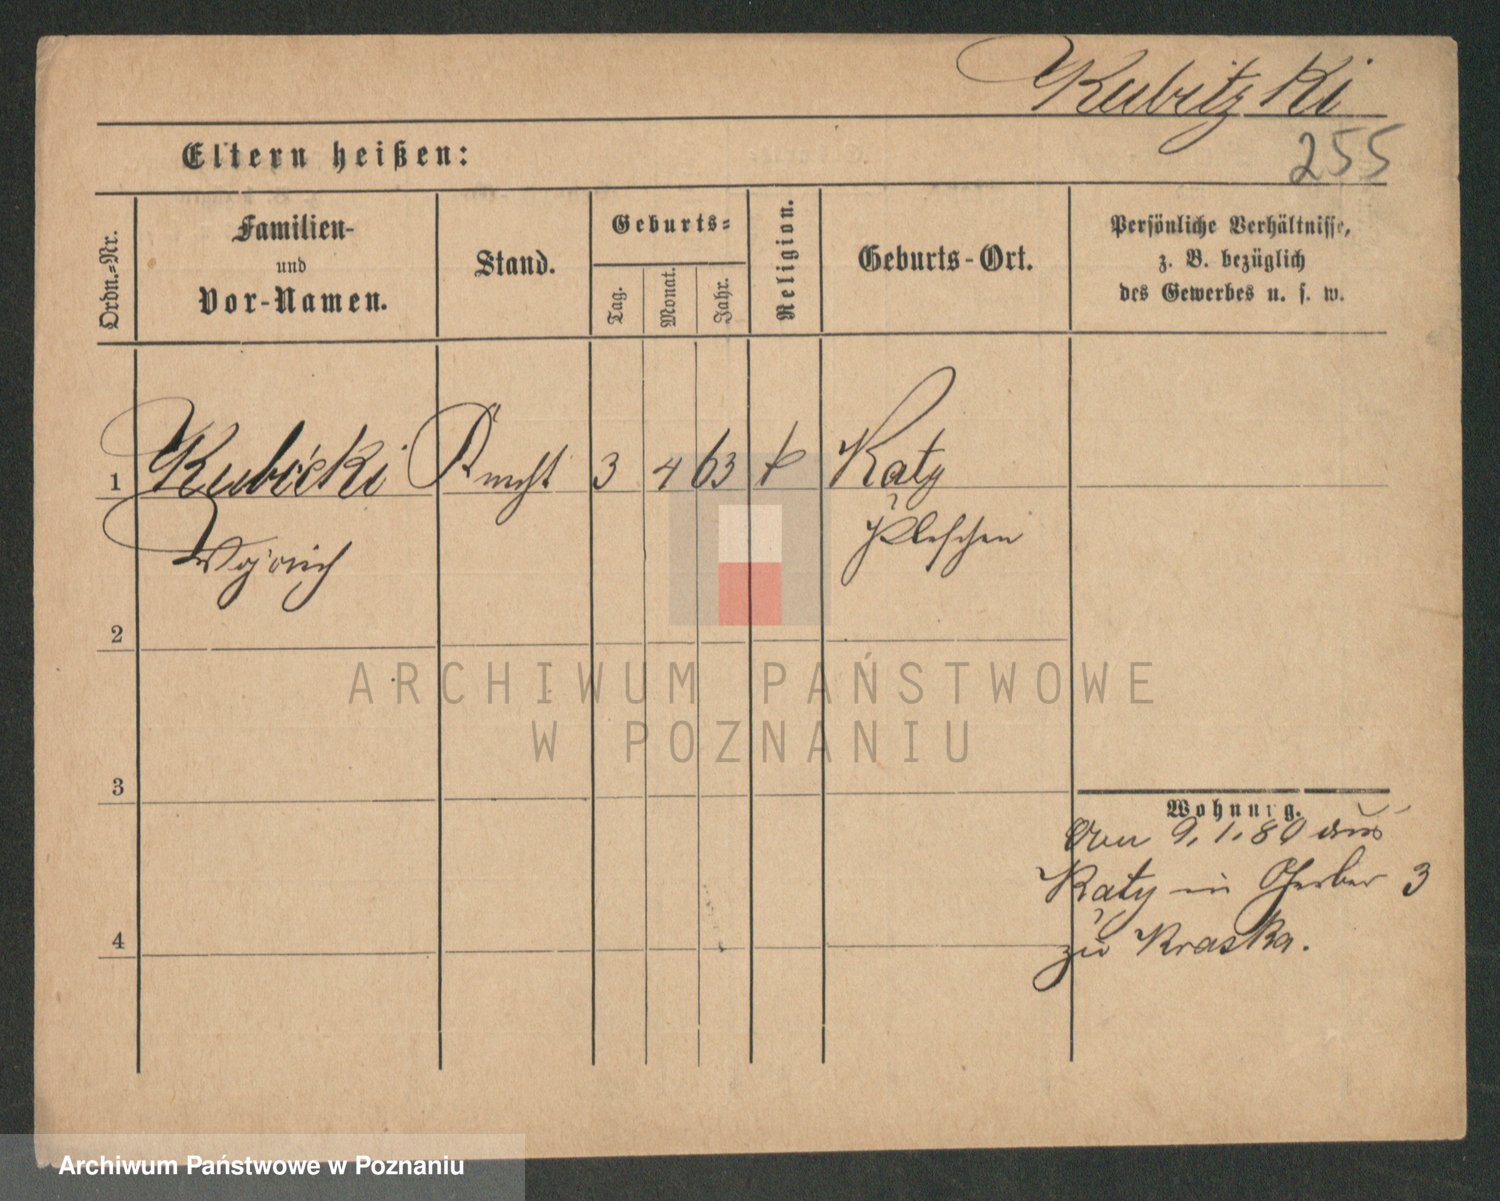 Kubitzki
255
Eltern heißen:
Ordn.-Nr.
Familien-
und
Vor-Namen.
Stand.
Geburts-
Tag.
Monat.
Jahr.
Religion.
Geburts-Ort.
Persönliche Verhältnisse,
z. B. bezüglich
des Gewerbes u. s. w.
1 Kubicki Knecht 3 4 63 k Katy
Pleschen
2
ARCHIWUM PAŃSTWOWE
W POZNANIU
3
Wohnung.
9. 1. 80 aus
Katy in Gerber 3
4
zu Kraska.
Archiwum Państwowe w Poznaniu